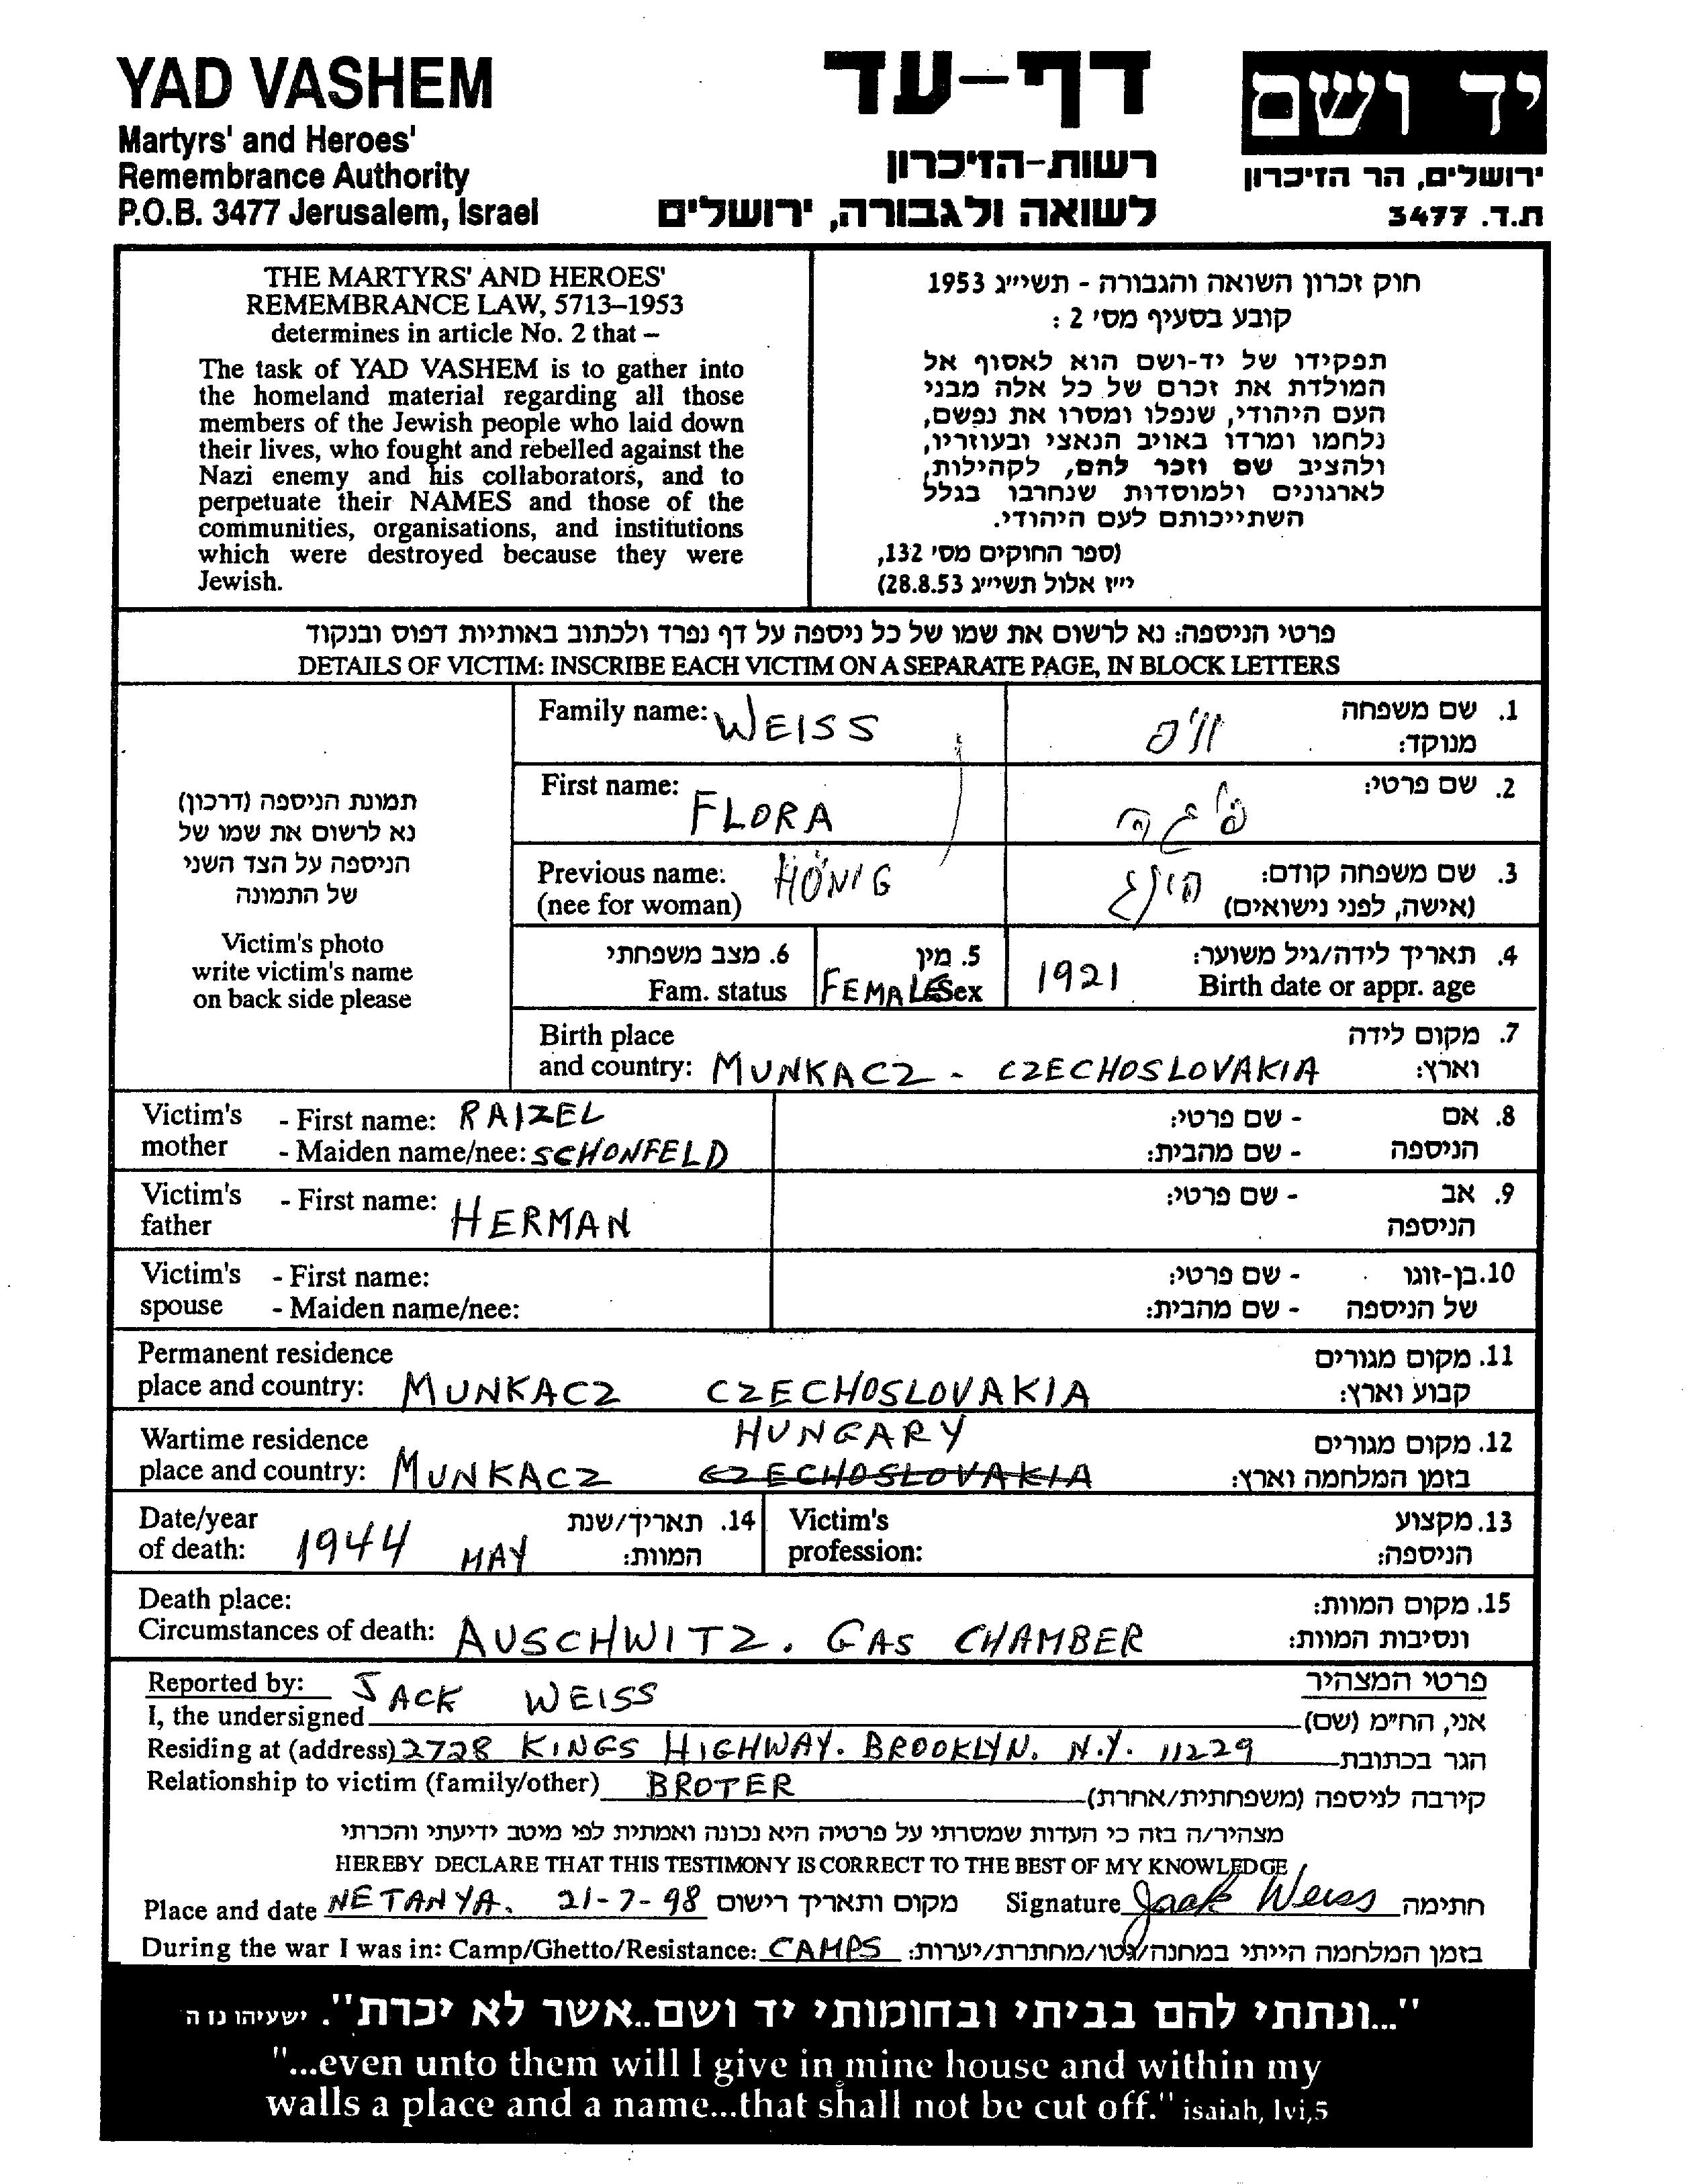 YAD VASHEM
Martyrs' and Heroes'
Remembrance Authority
P.O.B. 3477 Jerusalem, Israel
דף-עד
רשות-הזיכרון
לשואה ולגבורה, ירושלים
יד ושם
ירושלים, הר הזיכרון
ת.ד. 3477
THE MARTYRS' AND HEROES'
REMEMBRANCE LAW, 5713–1953
determines in article No. 2 that –
The task of YAD VASHEM is to gather into
the homeland material regarding all those
members of the Jewish people who laid down
their lives, who fought and rebelled against the
Nazi enemy and his collaborators, and to
perpetuate their NAMES and those of the
communities, organisations, and institutions
which were destroyed because they were
Jewish.
חוק זכרון השואה והגבורה - תשי״ג 1953
קובע בסעיף מס׳ 2 :
תפקידו של יד-ושם הוא לאסוף אל
המולדת את זכרם של כל אלה מבני
העם היהודי, שנפלו ומסרו את נפשם,
נלחמו ומרדו באויב הנאצי ובעוזריו,
ולהציב שם וזכר להם, לקהילות,
לארגונים ולמוסדות שנחרבו בגלל
השתייכותם לעם היהודי.
(ספר החוקים מס׳ 132,
י״ז אלול תשי״ג 28.8.53)
פרטי הניספה: נא לרשום את שמו של כל ניספה על דף נפרד ולכתוב באותיות דפוס ובנקוד
DETAILS OF VICTIM: INSCRIBE EACH VICTIM ON A SEPARATE PAGE, IN BLOCK LETTERS
תמונת הניספה (דרכון)
נא לרשום את שמו של
הניספה על הצד השני
של התמונה
Victim's photo
write victim's name
on back side please
Family name: WEISS
וייס
1. שם משפחה
מנוקד:
First name: FLORA
2. שם פרטי:
Previous name: HÖNIG
(nee for woman)
הוניג
3. שם משפחה קודם:
(אישה, לפני נישואים)
6. מצב משפחתי
Fam. status
5. מין
FEMALE Sex
1921
4. תאריך לידה/גיל משוער:
Birth date or appr. age
Birth place
and country: MUNKACZ - CZECHOSLOVAKIA
7. מקום לידה
וארץ:
Victim's mother - First name: RAIZEL
- Maiden name/nee: SCHONFELD
8. אם הניספה - שם פרטי:
- שם מהבית:
Victim's father - First name: HERMAN
9. אב הניספה - שם פרטי:
Victim's spouse - First name:
- Maiden name/nee:
10. בן-זוגו של הניספה - שם פרטי:
- שם מהבית:
Permanent residence
place and country: MUNKACZ CZECHOSLOVAKIA
11. מקום מגורים
קבוע וארץ:
Wartime residence HUNGARY
place and country: MUNKACZ CZECHOSLOVAKIA
12. מקום מגורים
בזמן המלחמה וארץ:
Date/year
of death: 1944 MAY
14. תאריך/שנת
המוות:
Victim's
profession:
13. מקצוע
הניספה:
Death place:
Circumstances of death: AUSCHWITZ. GAS CHAMBER
15. מקום המוות:
ונסיבות המוות:
Reported by: JACK WEISS
פרטי המצהיר
I, the undersigned
אני, הח״מ (שם)
Residing at (address) 2728 KINGS HIGHWAY. BROOKLYN. N.Y. 11229
הגר בכתובת
Relationship to victim (family/other) BROTER
קירבה לניספה (משפחתית/אחרת)
מצהיר/ה בזה כי העדות שמסרתי על פרטיה היא נכונה ואמתית לפי מיטב ידיעתי והכרתי
HEREBY DECLARE THAT THIS TESTIMONY IS CORRECT TO THE BEST OF MY KNOWLEDGE
Place and date NETANYA. 21-7-98 מקום ותאריך רישום Signature Jack Weiss חתימה
During the war I was in: Camp/Ghetto/Resistance: CAMPS בזמן המלחמה הייתי במחנה/גטו/מחתרת/יערות:
"...ונתתי להם בביתי ובחומותי יד ושם..אשר לא יכרת". ישעיהו נו ה
"...even unto them will I give in mine house and within my
walls a place and a name...that shall not be cut off." isaiah, lvi,5